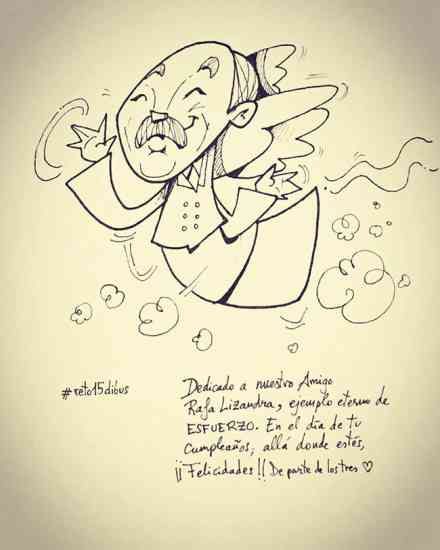 #reto15dibus
Dedicado a nuestro Amigo
Rafa Lizandra, ejemplo eterno de
ESFUERZO. En el día de tu
Cumpleaños, allá donde estés,
¡¡Felicidades!! De parte de los tres ♡